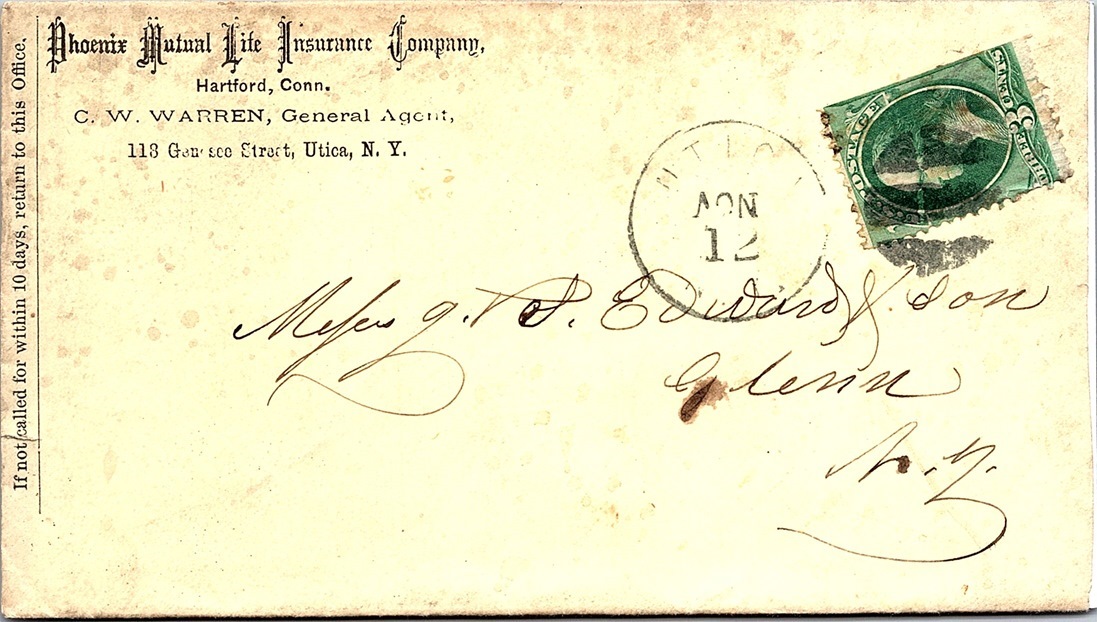 Phoenix Mutual Life Insurance Company,
Hartford, Conn.
C. W. WARREN, General Agent,
118 Genesee Street, Utica, N. Y.
If not called for within 10 days, return to this Office.
UTICA
12
POSTAGE
CENTS
Messrs J. S. Edwards & Son
Glenn
N. Y.